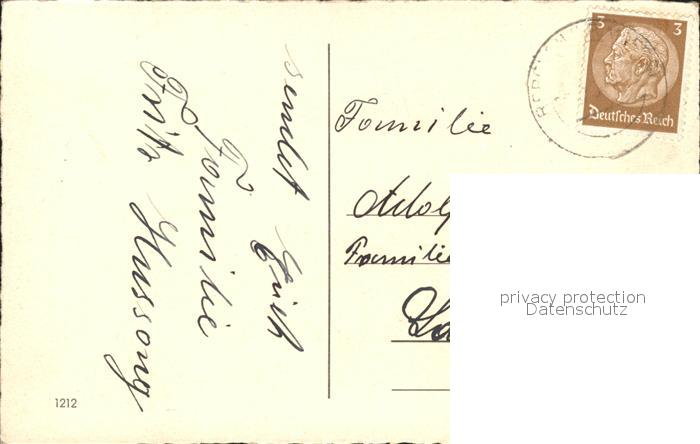 sendet Euch
Familie
Fritz Hussong
1212
Familie
Adolf
Familie
3 3
Deutsches Reich
privacy protection
Datenschutz